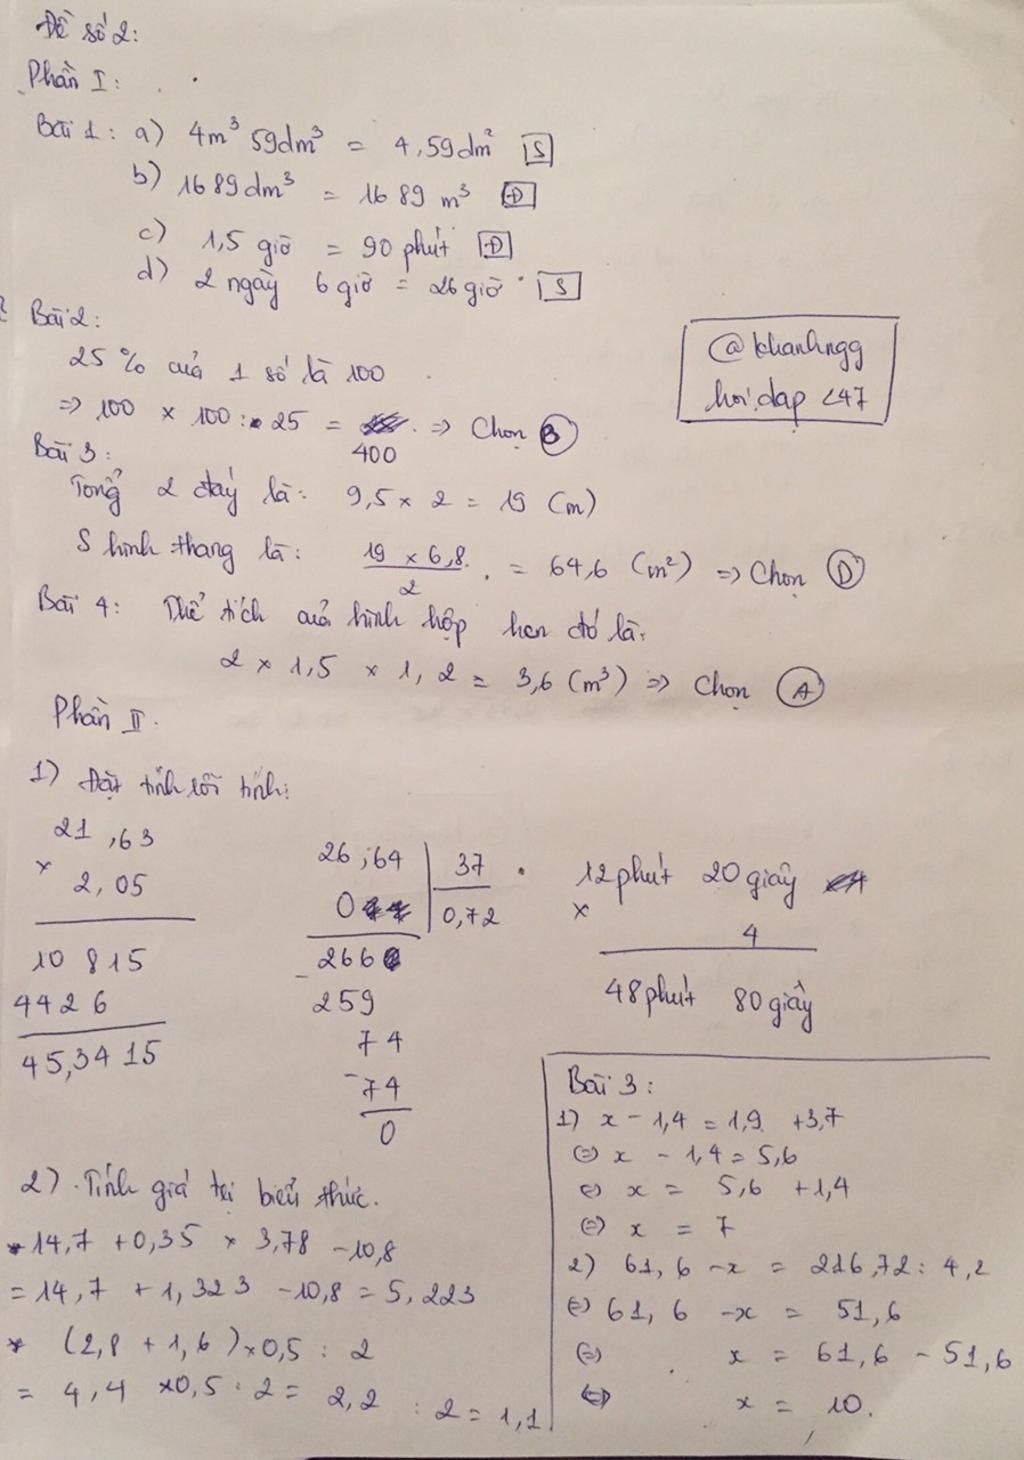 Đề số 2:
Phần I:
Bài 1: a) 4m³ 59dm³ = 4,59dm² S
b) 1689dm³ = 1689 m³ Đ
c) 1,5 giờ = 90 phút Đ
d) 2 ngày 6 giờ = 26 giờ S
Bài 2:
25% của 1 số là 100
=> 100 x 100 : 25 = 400 => Chọn B
@khanhngg
hoidap247
Bài 3:
Tổng 2 đáy là: 9,5 x 2 = 19 (m)
S hình thang là: 19 x 6,8 / 2 = 64,6 (m²) => Chọn D
Bài 4: Thể tích của hình hộp hcn đó là:
2 x 1,5 x 1,2 = 3,6 (m³) => Chọn A
Phần II.
1) Đặt tính rồi tính:
21,63
x
2,05
10 815
4426
45,3415
26,64 37
0 0,72
266
- 259
74
- 74
0
12 phút 20 giây
x
4
48 phút 80 giây
2) Tính giá trị biểu thức.
* 14,7 + 0,35 x 3,78 - 10,8
= 14,7 + 1,323 - 10,8 = 5,223
* (2,8 + 1,6) x 0,5 : 2
= 4,4 x 0,5 : 2 = 2,2 : 2 = 1,1
Bài 3:
1) x - 1,4 = 1,9 + 3,7
<=> x - 1,4 = 5,6
<=> x = 5,6 + 1,4
<=> x = 7
2) 61,6 - x = 216,72 : 4,2
<=> 61,6 - x = 51,6
<=> x = 61,6 - 51,6
<=> x = 10.